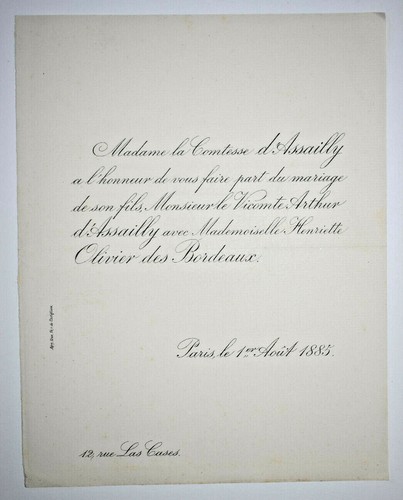 Madame la Comtesse d'Assailly
a l'honneur de vous faire part du mariage
de son fils, Monsieur le Vicomte Arthur
d'Assailly avec Mademoiselle Henriette
Olivier des Bordeaux.
Paris, le 1er Août 1885.
12, rue Las Cases.